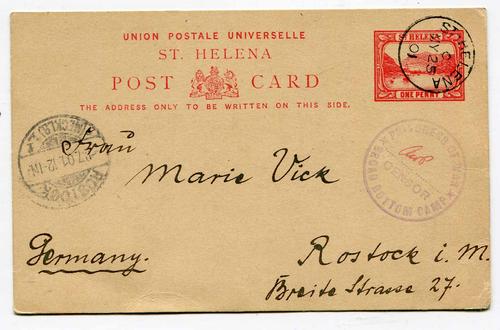 UNION POSTALE UNIVERSELLE
ST. HELENA
POST CARD
THE ADDRESS ONLY TO BE WRITTEN ON THIS SIDE.
ST. HELENA
ONE PENNY
ST HELENA
C
MY 25
01
PRISONERS OF WAR
CENSOR
BROAD BOTTOM CAMP
ROSTOCK
Frau
Marie Vick
Germany.
Rostock i. M.
Breite Strasse 27.